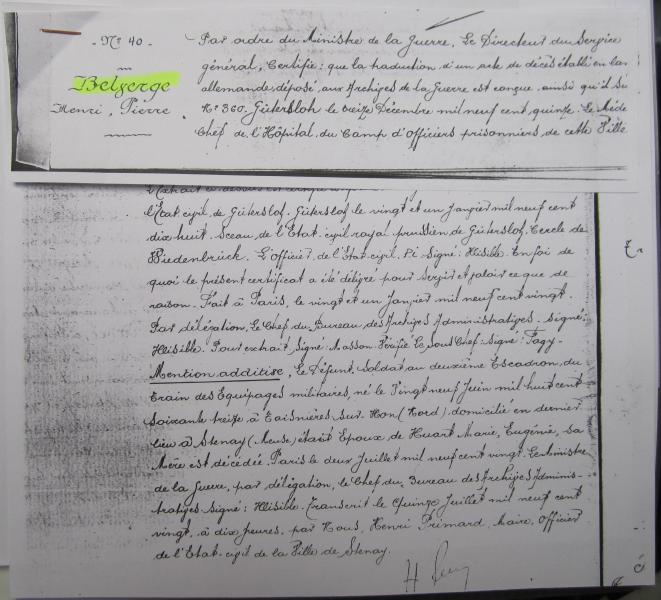 - N° 40 -
Belserge
Henri, Pierre
Par ordre du Ministre de la Guerre, Le Directeur du Service
général, Certifie: que la traduction d'un acte de décès établi en lan
allemande, déposé aux Archives de la Guerre est conçue ainsi qu'il su
N° 360. Gütersloh le treize Décembre mil neuf cent quinze. Le Méde
Chef de l'Hôpital du Camp d'Officiers prisonniers de cette Ville
L'Extrait ci dessus est certifié
l'Etat civil de Gütersloh. Gütersloh le vingt et un Janvier mil neuf cent
dix huit. Sceau de l'Etat civil royal prussien de Gütersloh. Cercle de
Wiedenbrück. L'officier de l'Etat-civil. Signé: Illisible. En foi de
quoi le présent certificat a été délivré pour servir et valoir ce que de
raison. Fait à Paris, le vingt et un Janvier mil neuf cent vingt.
Par délégation, Le Chef du Bureau des Archives Administratives. Signé:
Illisible. Pour extrait, signé: Masson. Vérifié Le Sous Chef. Signé: Fagy.
Mention additive, Le Défunt, Soldat au deuxième Escadron du
Train des Equipages militaires, né le Vingt neuf Juin mil huit cent
soixante treize à Taisnières sur Hon (Nord) domicilié en dernier
lieu à Stenay (Meuse) était Epoux de Huart Marie, Eugénie, sa
Mère est décédée. Paris le deux Juillet mil neuf cent vingt. Le Ministre
de la Guerre, par délégation, le Chef du Bureau des Archives Adminis-
tratives signé: Illisible. Transcrit le Quinze Juillet mil neuf cent
vingt, à dix heures, par Nous, Henri Primard, Maire, Officier
de l'Etat-civil de la Ville de Stenay.